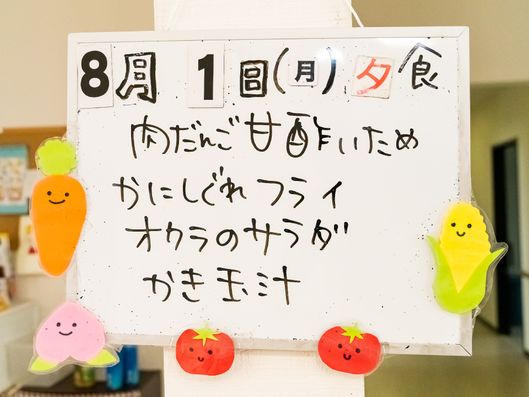 8月 1日(月) 夕食
肉だんご甘酢いため
かにしぐれフライ
オクラのサラダ
かき玉汁